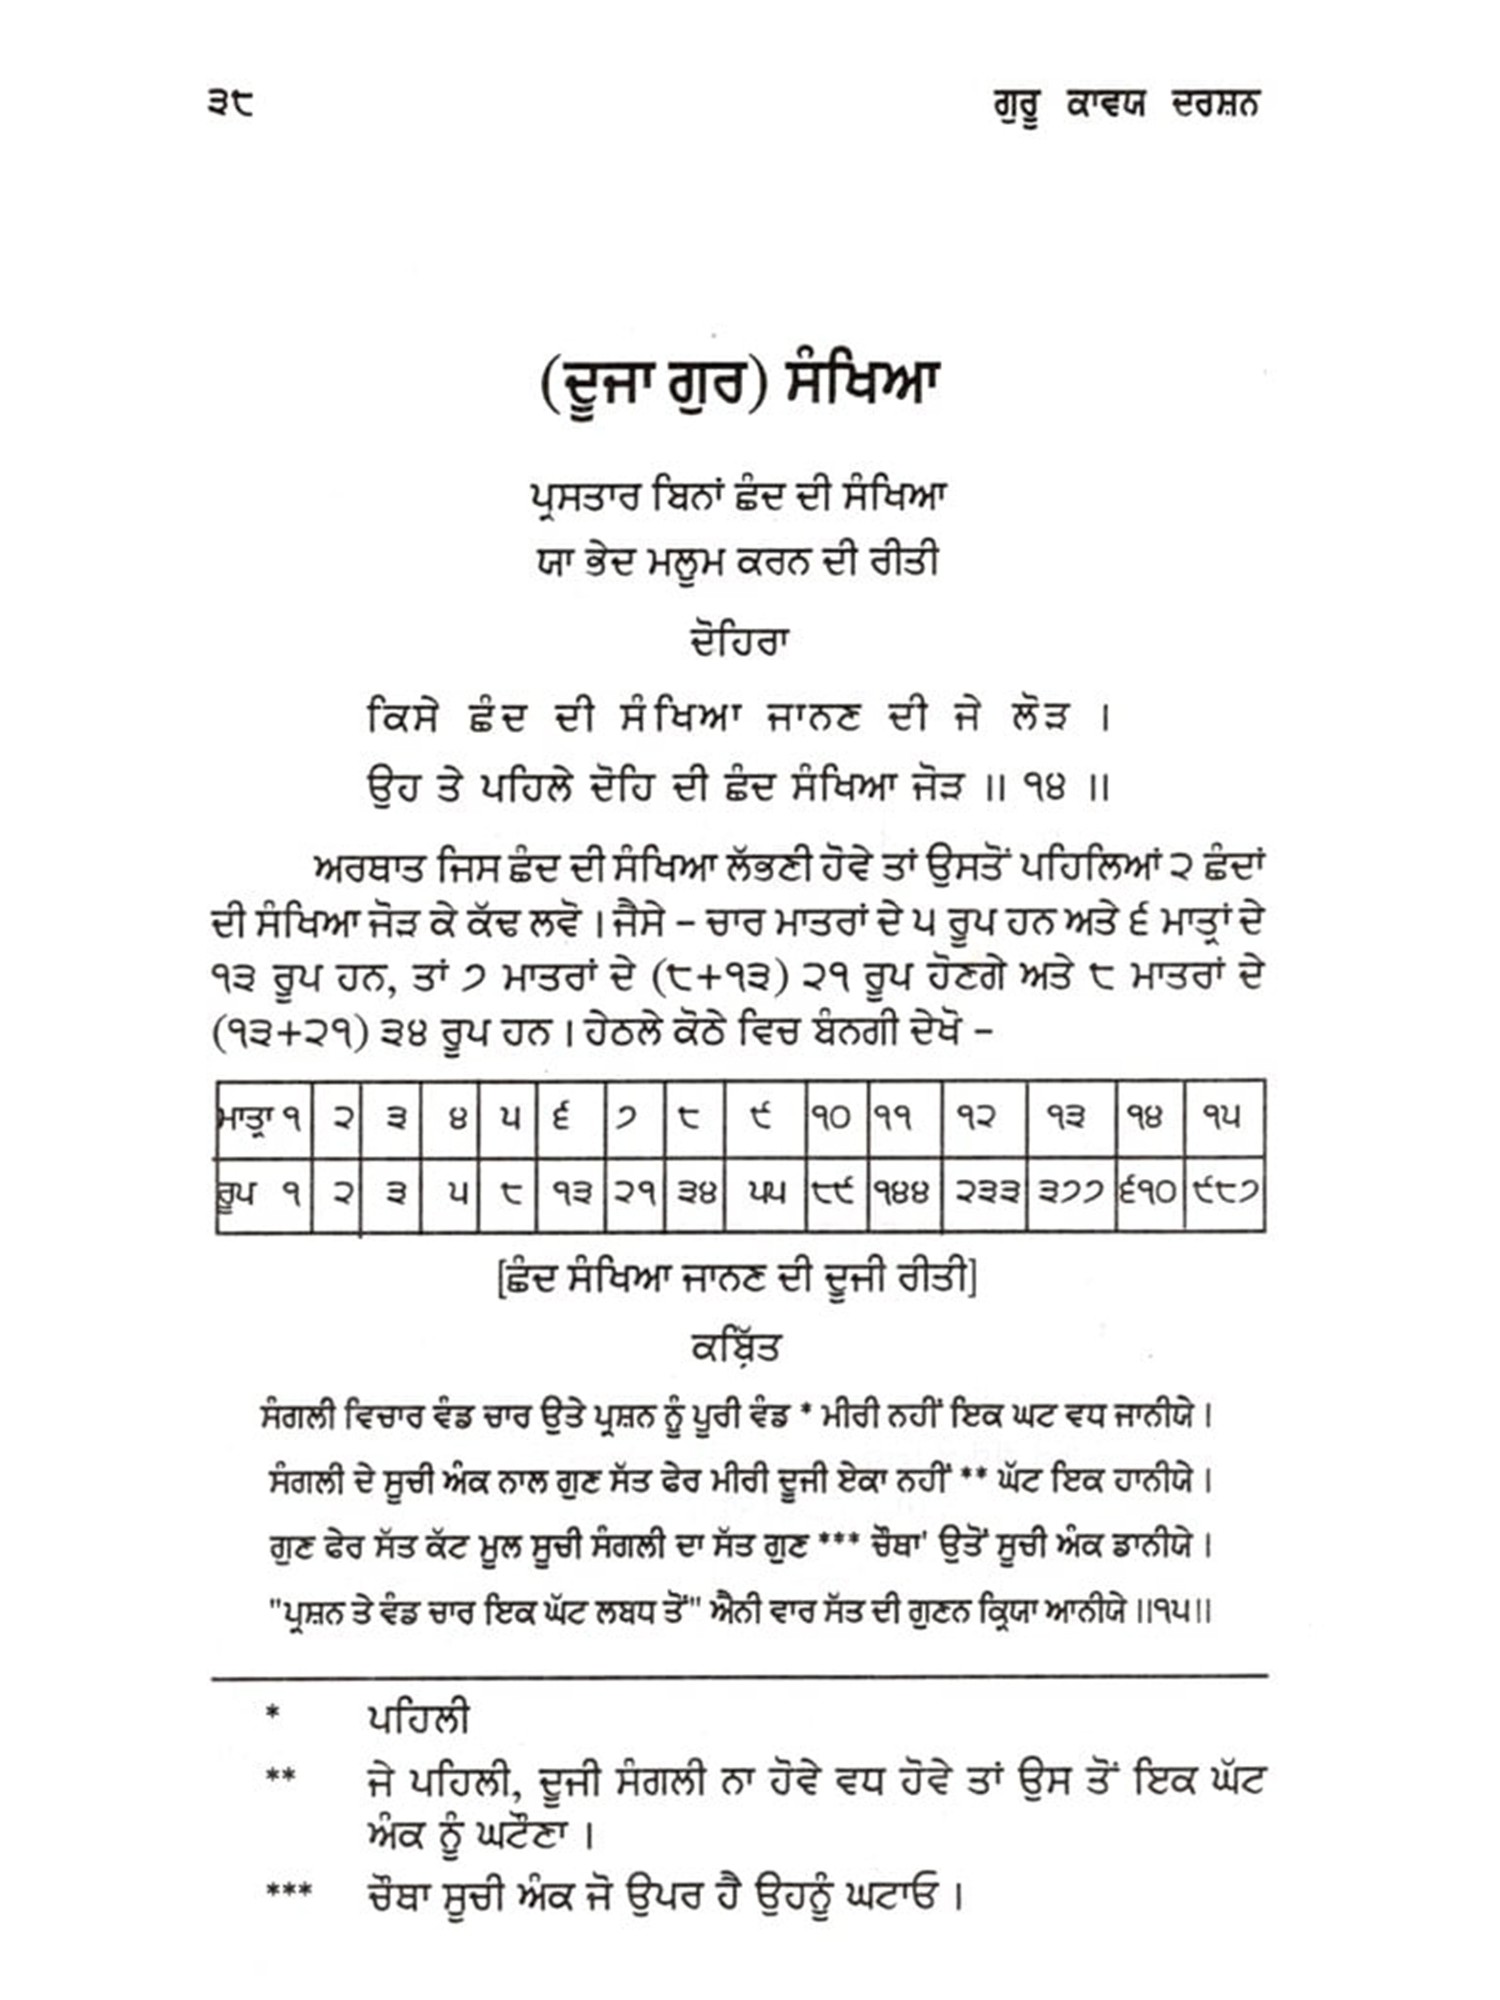 ੩੮ ਗੁਰੂ ਕਾਵਯ ਦਰਸ਼ਨ
(ਦੂਜਾ ਗੁਰ) ਸੰਖਿਆ
ਪ੍ਰਸਤਾਰ ਬਿਨਾਂ ਛੰਦ ਦੀ ਸੰਖਿਆ
ਯਾ ਭੇਦ ਮਲੂਮ ਕਰਨ ਦੀ ਰੀਤੀ
ਦੋਹਿਰਾ
ਕਿਸੇ ਛੰਦ ਦੀ ਸੰਖਿਆ ਜਾਨਣ ਦੀ ਜੇ ਲੋੜ ।
ਉਹ ਤੇ ਪਹਿਲੇ ਦੋਹਿ ਦੀ ਛੰਦ ਸੰਖਿਆ ਜੋੜ ॥ ੧੪ ॥
ਅਰਥਾਤ ਜਿਸ ਛੰਦ ਦੀ ਸੰਖਿਆ ਲੱਭਣੀ ਹੋਵੇ ਤਾਂ ਉਸਤੋਂ ਪਹਿਲਿਆਂ ੨ ਛੰਦਾਂ
ਦੀ ਸੰਖਿਆ ਜੋੜ ਕੇ ਕੱਢ ਲਵੋ । ਜੈਸੇ – ਚਾਰ ਮਾਤਰਾਂ ਦੇ ੫ ਰੂਪ ਹਨ ਅਤੇ ੬ ਮਾਤ੍ਰਾਂ ਦੇ
੧੩ ਰੂਪ ਹਨ, ਤਾਂ ੭ ਮਾਤਰਾਂ ਦੇ (੮+੧੩) ੨੧ ਰੂਪ ਹੋਣਗੇ ਅਤੇ ੮ ਮਾਤਰਾਂ ਦੇ
(੧੩+੨੧) ੩੪ ਰੂਪ ਹਨ । ਹੇਠਲੇ ਕੋਠੇ ਵਿਚ ਬੰਨਗੀ ਦੇਖੋ –
ਮਾਤ੍ਰਾ ੧ ੨ ੩ ੪ ੫ ੬ ੭ ੮ ੯ ੧੦ ੧੧ ੧੨ ੧੩ ੧੪ ੧੫
ਰੂਪ ੧ ੨ ੩ ੫ ੮ ੧੩ ੨੧ ੩੪ ੫੫ ੮੯ ੧੪੪ ੨੩੩ ੩੭੭ ੬੧੦ ੯੮੭
[ਛੰਦ ਸੰਖਿਆ ਜਾਨਣ ਦੀ ਦੂਜੀ ਰੀਤੀ]
ਕਬਿੱਤ
ਸੰਗਲੀ ਵਿਚਾਰ ਵੰਡ ਚਾਰ ਉਤੇ ਪ੍ਰਸ਼ਨ ਨੂੰ ਪੂਰੀ ਵੰਡ * ਮੀਰੀ ਨਹੀਂ ਇਕ ਘਟ ਵਧ ਜਾਨੀਯੇ ।
ਸੰਗਲੀ ਦੇ ਸੂਚੀ ਅੰਕ ਨਾਲ ਗੁਣ ਸੱਤ ਫੇਰ ਮੀਰੀ ਦੂਜੀ ਏਕਾ ਨਹੀਂ ** ਘੱਟ ਇਕ ਹਾਨੀਯੇ ।
ਗੁਣ ਫੇਰ ਸੱਤ ਕੱਟ ਮੂਲ ਸੂਚੀ ਸੰਗਲੀ ਦਾ ਸੱਤ ਗੁਣ *** ਚੌਥਾ' ਉਤੋਂ ਸੂਚੀ ਅੰਕ ਡਾਨੀਯੇ ।
"ਪ੍ਰਸ਼ਨ ਤੇ ਵੰਡ ਚਾਰ ਇਕ ਘੱਟ ਲਬਧ ਤੋਂ" ਐਨੀ ਵਾਰ ਸੱਤ ਦੀ ਗੁਣਨ ਕ੍ਰਿਯਾ ਆਨੀਯੇ ॥੧੫॥
* ਪਹਿਲੀ
** ਜੇ ਪਹਿਲੀ, ਦੂਜੀ ਸੰਗਲੀ ਨਾ ਹੋਵੇ ਵਧ ਹੋਵੇ ਤਾਂ ਉਸ ਤੋਂ ਇਕ ਘੱਟ
ਅੰਕ ਨੂੰ ਘਟੌਣਾ ।
*** ਚੌਥਾ ਸੂਚੀ ਅੰਕ ਜੋ ਉਪਰ ਹੈ ਉਹਨੂੰ ਘਟਾਓ ।